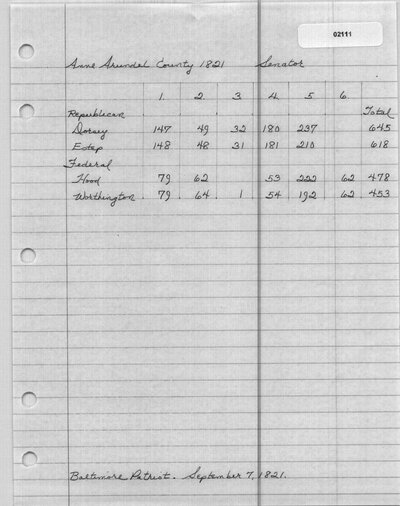 02111
Anne Arundel County 1821 Senator
1. 2. 3. 4. 5 6.
Republican Total
Dorsey 147 49 32 180 237 645
Estep 148 48 31 181 210 618
Federal
Hood 79 62 53 222 62 478
Worthington 79 64 1 54 192 62 453
Baltimore Patriot. September 7, 1821.